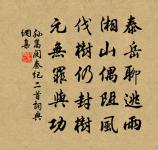 泰岳聊逃雨
湘山偶阻風
伐樹仍封樹
元無罪與功
孫嵩閱秦紀二首詞典
網集